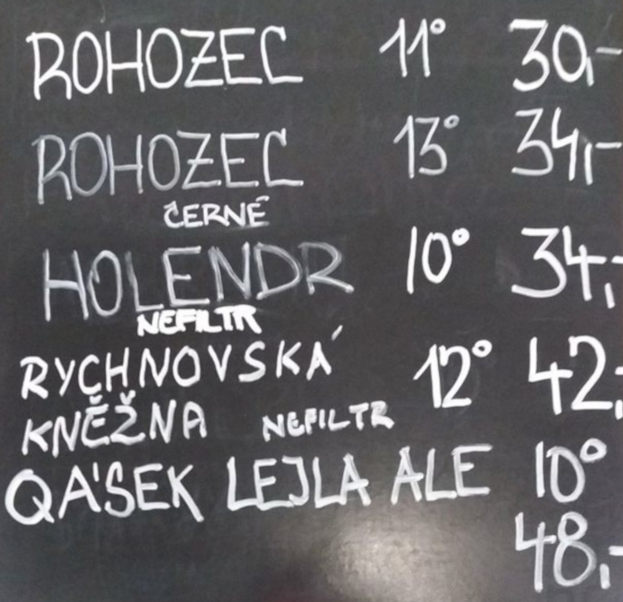 ROHOZEC 11° 30,-
ROHOZEC 13° 34,-
ČERNÉ
HOLENDR 10° 34,-
NEFILTR
RYCHNOVSKÁ 12° 42,-
KNĚŽNA NEFILTR
QÁSEK LEJLA ALE 10°
48,-